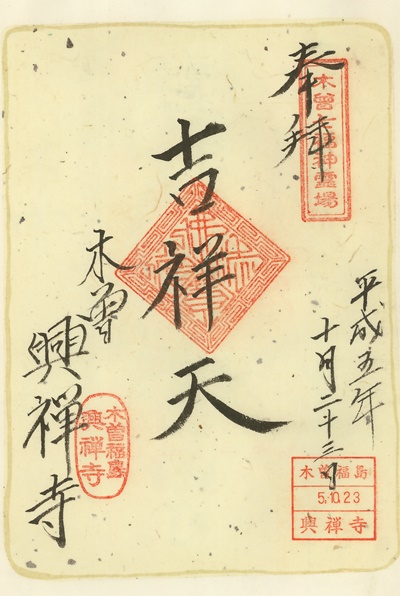 奉拝
木曽七福神霊場
吉祥天
平成五年
十月二十三日
木曽
興禅寺
木曽福島
興禅寺
木曽福島
5.10.23
興禅寺